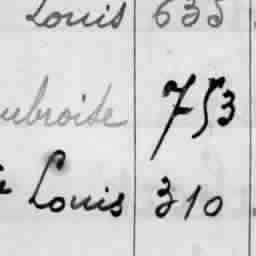 Louis 635
ubroise 753
Louis 310